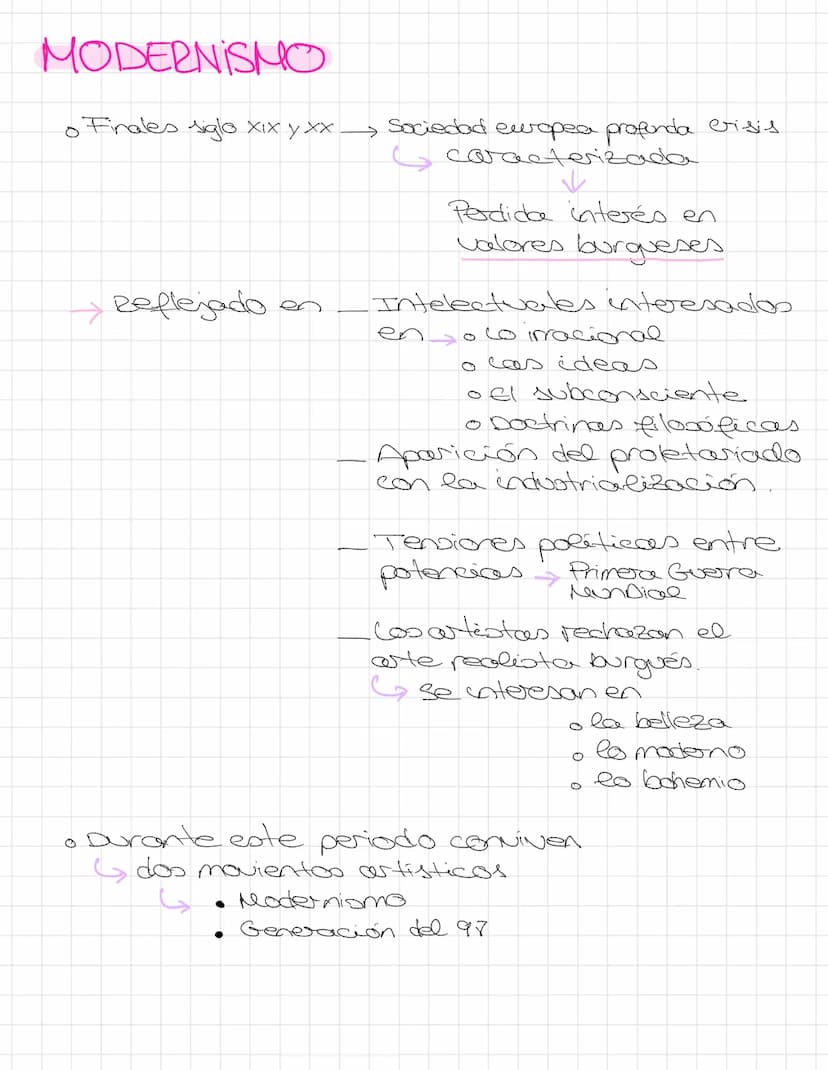 MODERNISMO
o Finales siglo XIX y XX → Sociedad europea profunda crisis
↪ caracterizada
↓
Perdida interés en
valores burgueses
→ Reflejado en — Intelectuales interesados
en → o Lo irracional
o Las ideas
o El subconsciente
o Doctrinas filosóficas
— Aparición del proletariado
con la industrialización.
— Tensiones políticas entre
potencias → Primera Guerra
Mundial
— Los artistas rechazan el
arte realista burgués.
↪ Se interesan en
o la belleza
o lo moderno
o lo bohemio
o Durante este periodo conviven
↪ dos movientos artísticos
↪ • Modernismo
• Generación del 97